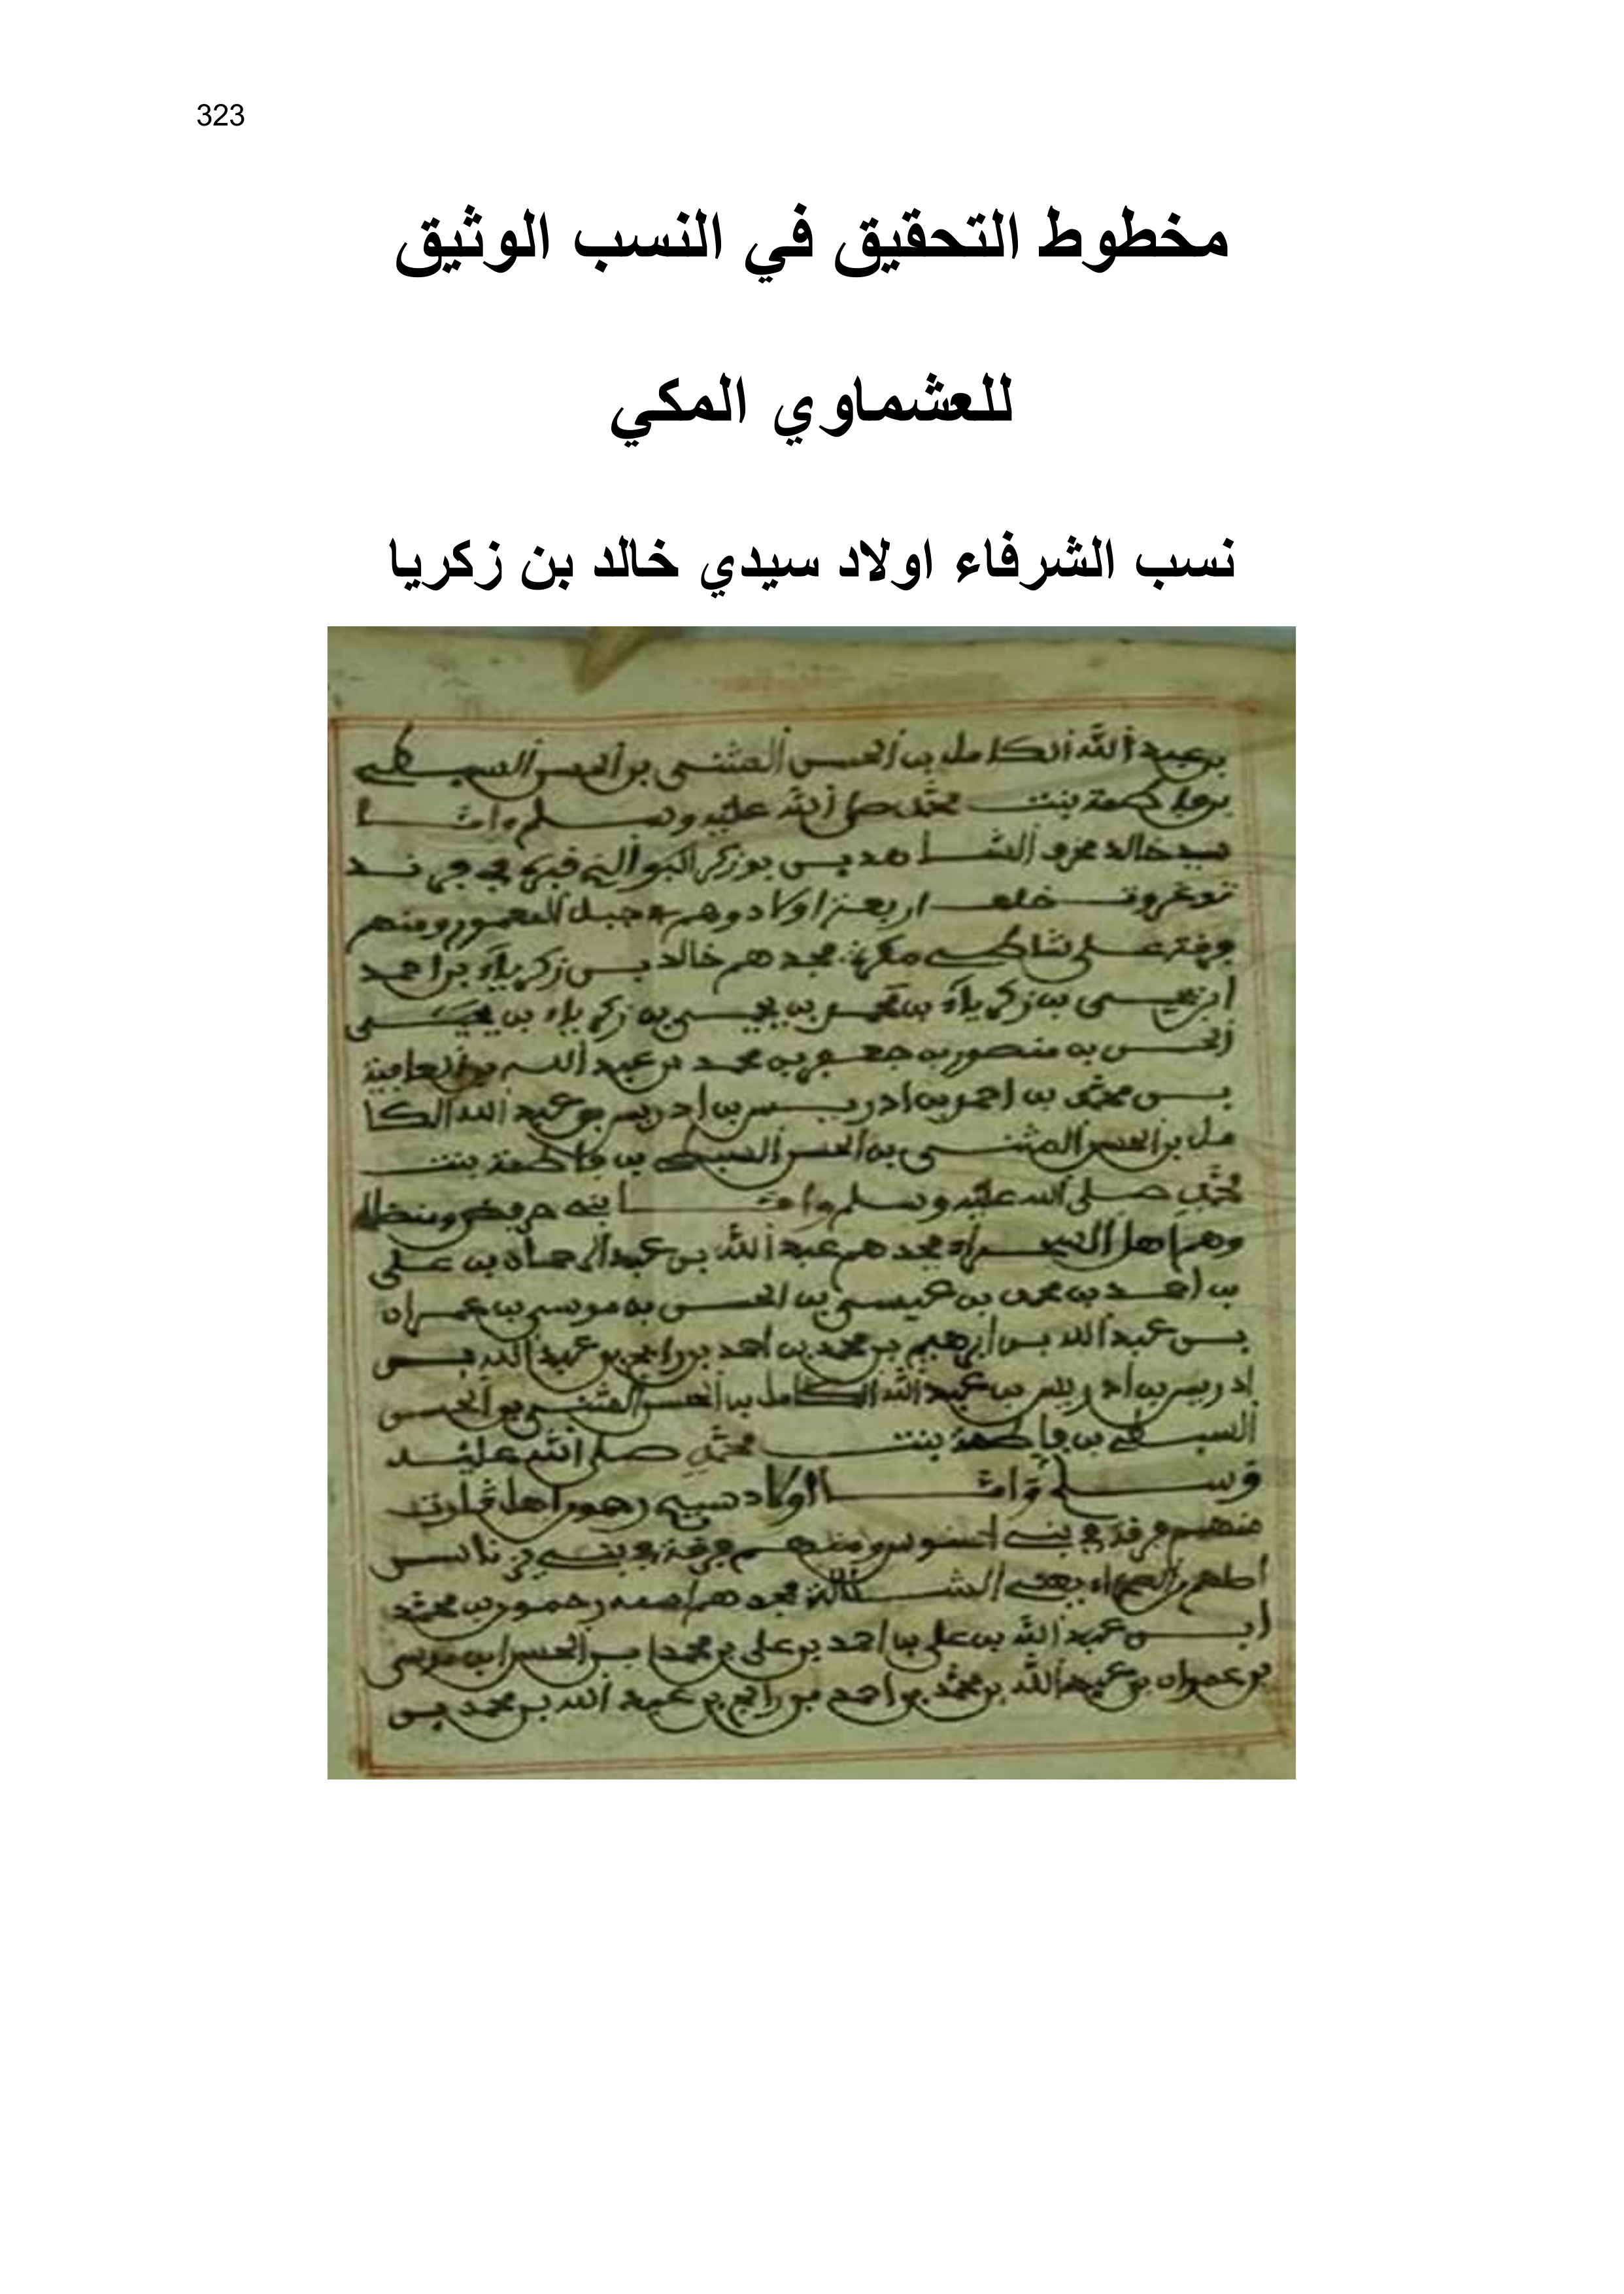 323
مخطوط التحقيق في النسب الوثيق
للعشماوي المكي
نسب الشرفاء اولاد سيدي خالد بن زكريا
بن عبد الله الكامل بن الحسن المثنى بن الحسن السبطي
بن فاطمة بنت محمد صلى الله عليه وسلم واما
سيد خالد بن زكرياء
خلف اربعة اولاد وهم جبل ومنهم
فرقة على شاطئ جدهم خالد بن زكرياء بن احمد
ابن يحيى بن زكرياء بن بن يحيى بن زكرياء بن يحيى
الحسن بن منصور بن جعفر بن محمد بن عبد الله بن
بن محمد بن احمد بن ادريس بن ادريس بن عبد الله الكا
مل بن الحسن المثنى بن الحسن السبطي بن فاطمة بنت
محمد صلى الله عليه وسلم واما
وهم اهل الصحراء جدهم عبد الله بن بن علي
بن احمد بن محمد بن عيسى بن الحسن بن موسى بن عمران
بن عبد الله بن ابرهيم بن محمد بن احمد بن عبد الله بن
ادريس بن ادريس بن عبد الله الكامل بن الحسن المثنى بن الحسن
السبطي بن فاطمة بنت محمد صلى الله عليه
وسلم واما اولاد اهل
منهم فرقة في بني ومنهم فرقة في بني
جدهم اسمه رحمون بن محمد
ابن عبد الله بن علي بن احمد بن علي بن محمد ابن الحسن ابن موسى
بن عمران بن عبد الله بن محمد بن احمد بن عبد الله بن محمد بن